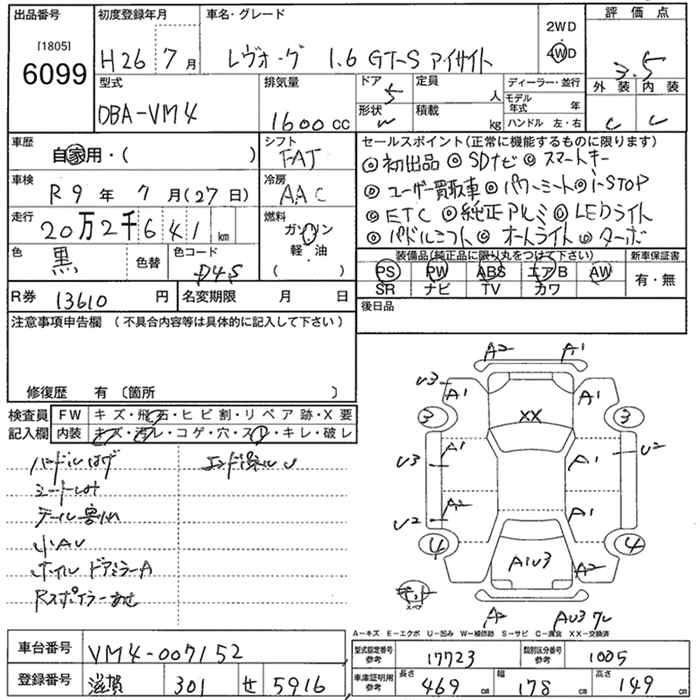 出品番号 初度登録年月 車名・グレード 評価点
[1805]
6099
H26年 7月 レヴォーグ 1.6 GT-S アイサイト
2WD
4WD
3.5
型式 排気量 ドア 定員 ディーラー・並行 外装 内装
DBA-VM4 1600cc 5 人 モデル年式 年
形状 W 積載 kg ハンドル 左・右 C C
車歴 自家用・( ) シフト FAT
車検 R9年 7月(27日) 冷房 AAC
走行 20万2千641km 燃料 ガソリン
軽・油
( )
色 黒 色替 色コード D4S
R券 13610円 名変期限 月 日
セールスポイント(正常に機能するものに限ります)
◎初出品 ◎SDナビ ◎スマートキー
◎ユーザー買取車 ◎パワーシート ◎i-STOP
◎ETC ◎純正アルミ ◎LEDライト
◎パドルシフト ◎オートライト ◎ターボ
装備品(純正品に限り丸をつけて下さい) 新車保証書
PS PW ABS エアB AW 有・無
SR ナビ TV カワ
後日品
注意事項申告欄 (不具合内容等は具体的に記入して下さい)
修復歴 有 〔箇所 〕
検査員 FW キズ・飛石・ヒビ割・リペア跡・X要
記入欄 内装 キズ・汚レ・コゲ・穴・スレ・キレ・破レ
ハンドルはげ
小AU
ホイル ドアミラーA
A2 A1
U3 A1 A1
XX
3 3
U3 A1 A1 U2
U2 A2 A1
4 4
A1U3 A2
スペア
A2
A-キズ E-エクボ U-凹み W-補修跡 S-サビ C-腐食 XX-交換済
車台番号 VM4-007152
登録番号 滋賀 301 せ 5916
型式指定番号 参考 17723 類別区分番号 参考 1005
車庫証明用 参考 長さ 469cm 幅 178cm 高さ 149cm